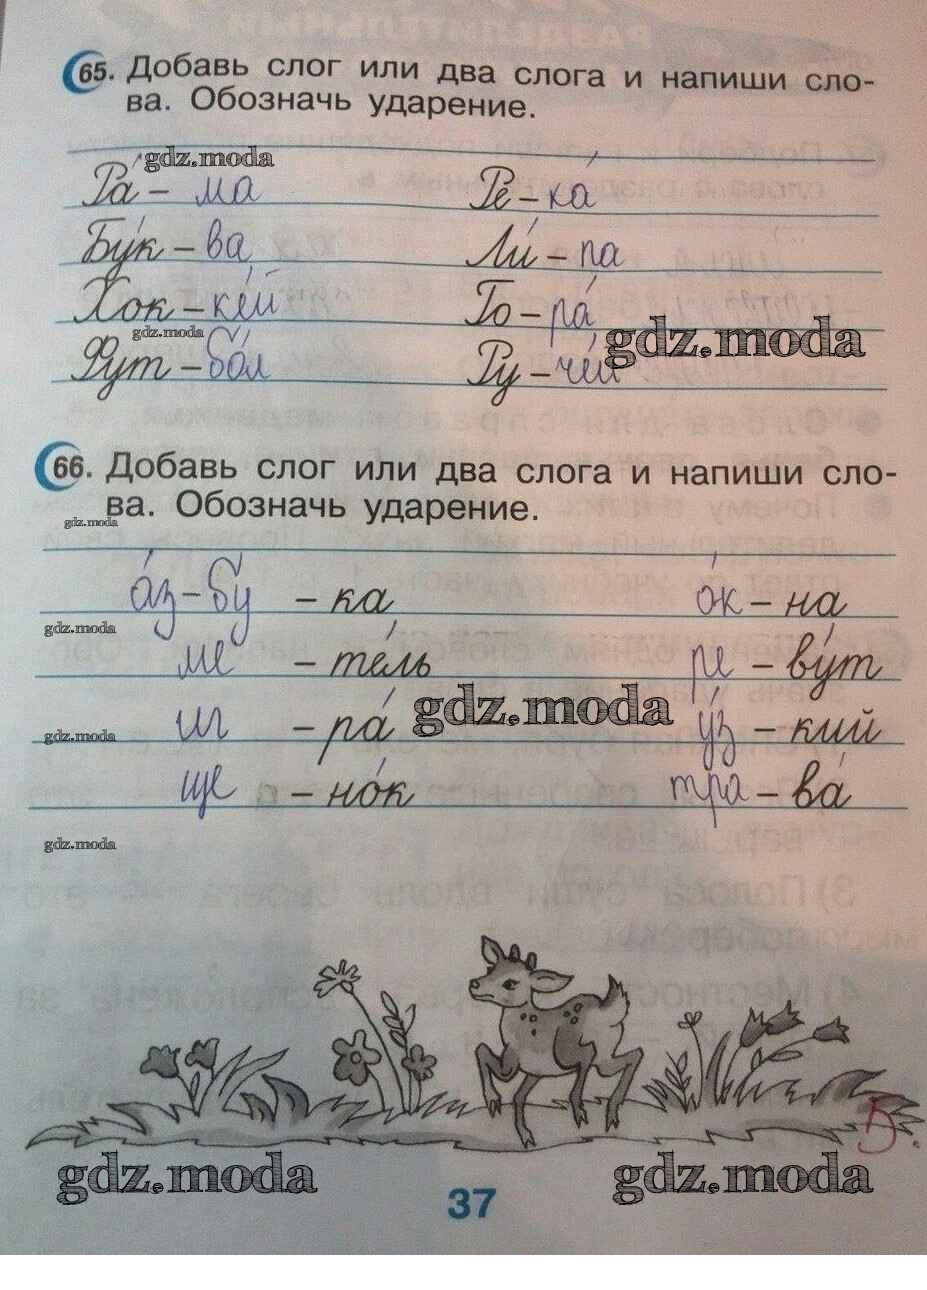 65. Добавь слог или два слога и напиши сло-
ва. Обозначь ударение.
gdz.moda
Ра́ - ма Ре - ка́
Бу́к - ва Ли́ - па
Хок - ке́й Го - ра́
gdz.moda gdz.moda
Фут - бо́л Ру - че́й
66. Добавь слог или два слога и напиши сло-
ва. Обозначь ударение.
gdz.moda
а́з - бу - ка о́к - на
gdz.moda
ме - те́ль ре - ву́т
gdz.moda
иг - ра́ у́з - кий
gdz.moda
ще - но́к тра - ва́
gdz.moda
5.
gdz.moda gdz.moda
37